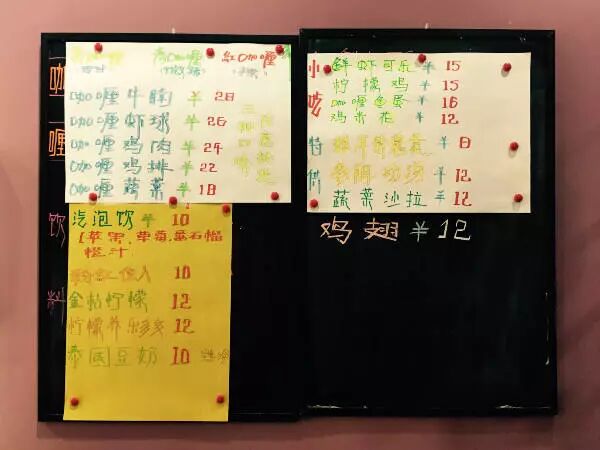 咖喱
青咖喱 红咖喱
咖喱牛腩 ¥ 28
咖喱虾球 ¥ 26
咖喱鸡肉 ¥ 24
咖喱鸡排 ¥ 22
咖喱蔬菜 ¥ 18
三种口味
饮料
汽泡饮 ¥ 10
(苹果,草莓,番石榴
橙汁
粉红佳人 10
金桔柠檬 12
柠檬养乐多 12
泰国豆奶 10
小吃
鲜虾可乐 ¥ 15
柠檬鸡 ¥ 15
咖喱鱼蛋 ¥ 16
鸡米花 ¥ 12
¥ 8
泰式 ¥ 12
蔬菜沙拉 ¥ 12
鸡翅 ¥ 12